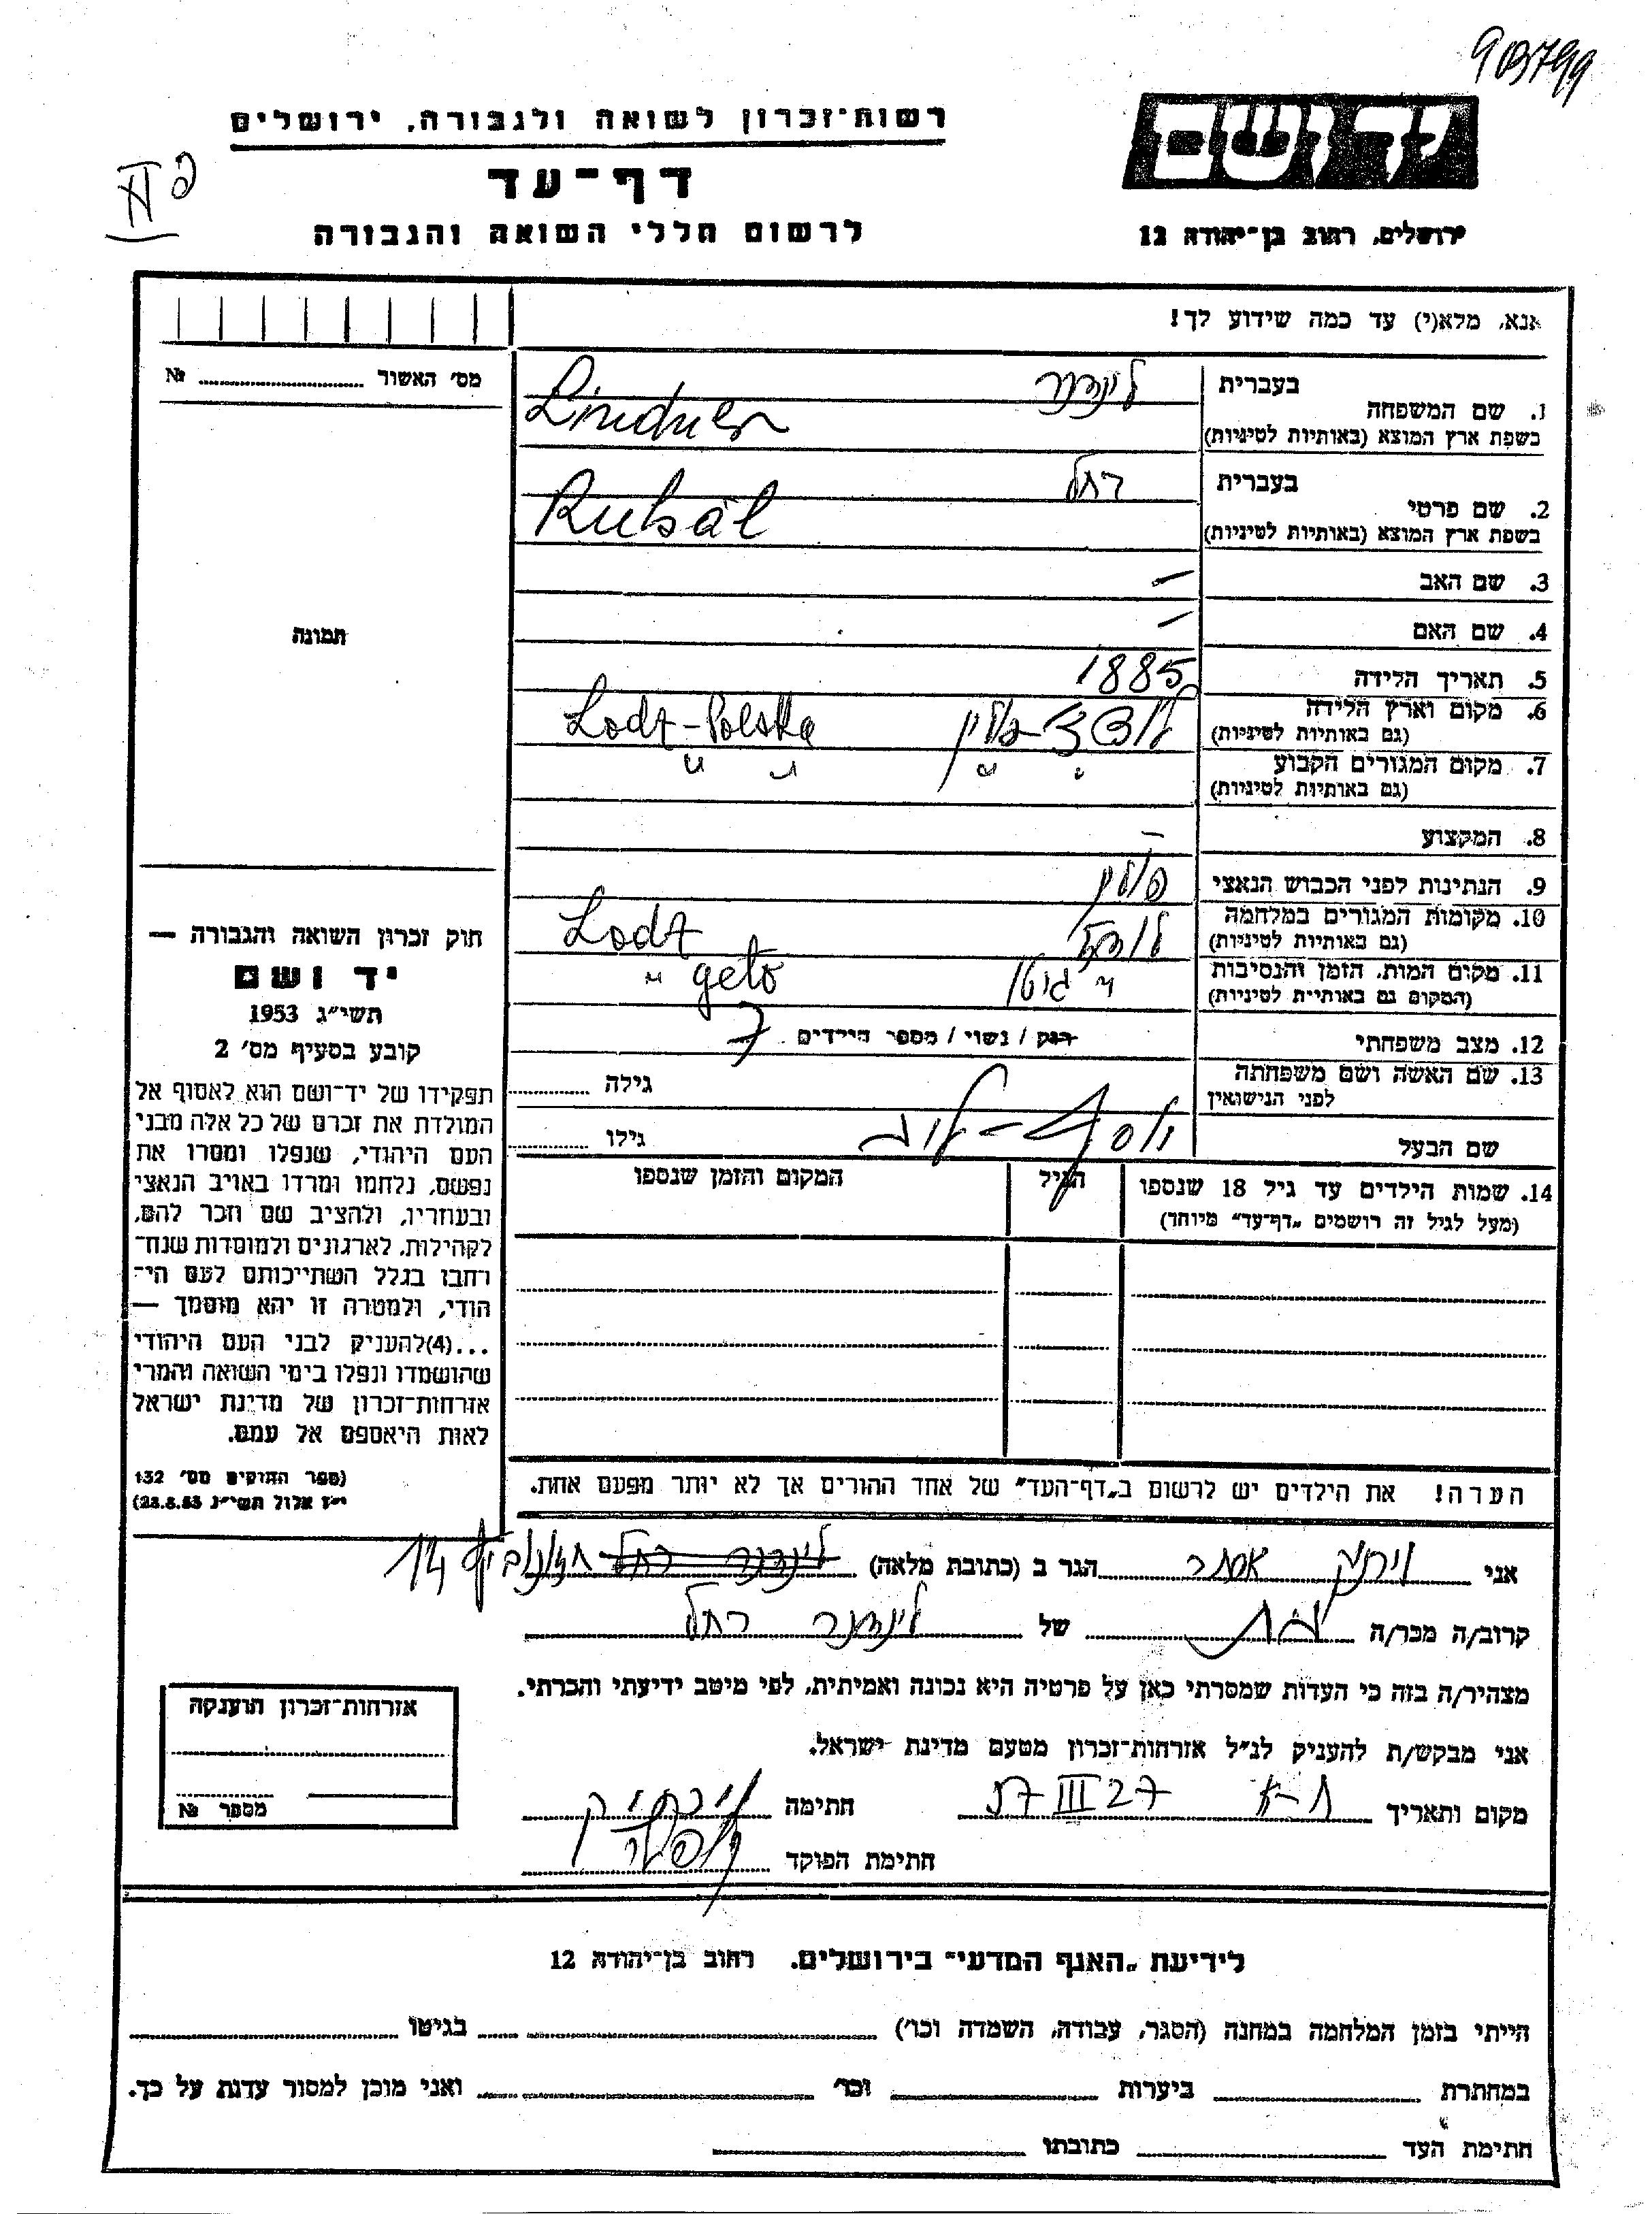 903799
יד ושם
ירושלים, רחוב בן־יהודה 12
רשות־זכרון לשואה ולגבורה, ירושלים
דף־עד
לרשום חללי השואה והגבורה
אנא, מלא(י) עד כמה שידוע לך!
מס׳ האשור № ........
תמונה
בעברית לינדנר
1. שם המשפחה
בשפת ארץ המוצא (באותיות לטיניות) Lindner
בעברית רחל
2. שם פרטי
בשפת ארץ המוצא (באותיות לטיניות)
3. שם האב –
4. שם האם –
5. תאריך הלידה 1885
6. מקום וארץ הלידה לודז׳ פולין Lodz-Polska
(גם באותיות לטיניות)
7. מקום המגורים הקבוע " " " "
(גם באותיות לטיניות)
8. המקצוע –
9. הנתינות לפני הכבוש הנאצי פולין
10. מקומות המגורים במלחמה לודז׳ Lodz
(גם באותיות לטיניות)
11. מקום המות, הזמן והנסיבות " גיטו " geto
(המקום גם באותיות לטיניות)
12. מצב משפחתי רוק / נשוי / מספר הילדים 7
13. שם האשה ושם משפחתה גילה ........
לפני הנישואין
שם הבעל גילו ........
14. שמות הילדים עד גיל 18 שנספו הגיל המקום והזמן שנספו
(מעל לגיל זה רושמים „דף־עד״ מיוחד)
הערה! את הילדים יש לרשום ב„דף־העד״ של אחד ההורים אך לא יותר מפעם אחת.
חוק זכרון השואה והגבורה —
יד ושם
תשי״ג 1953
קובע בסעיף מס׳ 2
תפקידו של יד־ושם הוא לאסוף אל
המולדת את זכרם של כל אלה מבני
העם היהודי, שנפלו ומסרו את
נפשם, נלחמו ומרדו באויב הנאצי
ובעוזריו, ולהציב שם וזכר להם,
לקהילות, לארגונים ולמוסדות שנח־
רבו בגלל השתייכותם לעם הי־
הודי, ולמטרה זו יהא מוסמך —
...(4) להעניק לבני העם היהודי
שהושמדו ונפלו בימי השואה והמרי
אזרחות־זכרון של מדינת ישראל
לאות היאספם אל עמם.
(ספר החוקים מס׳ 132
י״ז אלול תשי״ג 28.8.53)
אני אסתר הגר ב (כתובת מלאה) לינדנר רחל 14
קרוב/ה מכר/ה בת של לינדנר רחל
מצהיר/ה בזה כי העדות שמסרתי כאן על פרטיה היא נכונה ואמיתית, לפי מיטב ידיעתי והכרתי.
אני מבקש/ת להעניק לנ״ל אזרחות־זכרון מטעם מדינת ישראל.
מקום ותאריך ת-א 27 III 57 חתימה
חתימת הפוקד
אזרחות־זכרון הוענקה
מספר №
לידיעת „האגף המדעי״ בירושלים, רחוב בן־יהודה 12
הייתי בזמן המלחמה במחנה (הסגר, עבודה, השמדה וכו׳) ........ בגיטו ........
במחתרת ........ ביערות ........ וכו׳ ........ ואני מוכן למסור עדות על כך.
חתימת העד ........ כתובתו ........